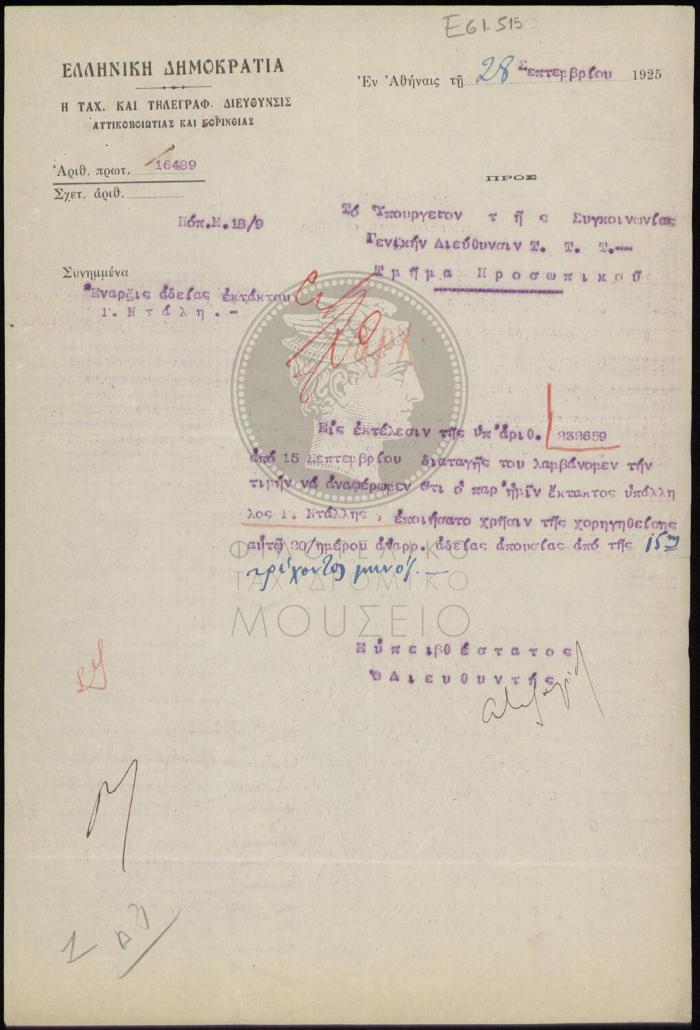 Ε61.515
ΕΛΛΗΝΙΚΗ ΔΗΜΟΚΡΑΤΙΑ
Η ΤΑΧ. ΚΑΙ ΤΗΛΕΓΡΑΦ. ΔΙΕΥΘΥΝΣΙΣ
ΑΤΤΙΚΟΒΟΙΩΤΙΑΣ ΚΑΙ ΚΟΡΙΝΘΙΑΣ
Ἐν Ἀθήναις τῇ 28 Σεπτεμβρίου 1925
Ἀριθ. πρωτ. 16489
Σχετ. ἀριθ.
Πόπ.Μ.18/9
ΠΡΟΣ
Τό Ὑπουργεῖον τῆς Συγκοινωνίας
Γενικήν Διεύθυνσιν Τ. Τ. Τ.—
Τμῆμα Προσωπικοῦ
Συνημμένα
Ἔναρξις ἀδείας ἐκτάκτου
Γ. Ντάλη.-
Εἰς ἐκτέλεσιν τῆς ὑπ'ἀριθ. 232659
ἀπό 15 Σεπτεμβρίου διαταγῆς του λαμβάνομεν τήν
τιμήν νά ἀναφέρωμεν ὅτι ὁ παρ'ἡμῖν ἔκτακτος ὑπάλλη
λος Γ. Ντάλλης, ἐποιήσατο χρῆσιν τῆς χορηγηθείσης
αὐτῷ 20/ημέρου ἀναρρ. ἀδείας ἀπουσίας ἀπό τῆς 15ης
τρέχοντος μηνός.—
ΦΙΛΟΤΕΛΙΚΟ
ΤΑΧΥΔΡΟΜΙΚΟ
ΜΟΥΣΕΙΟ
Εὐπειθέστατος
Ὁ Διευθυντής